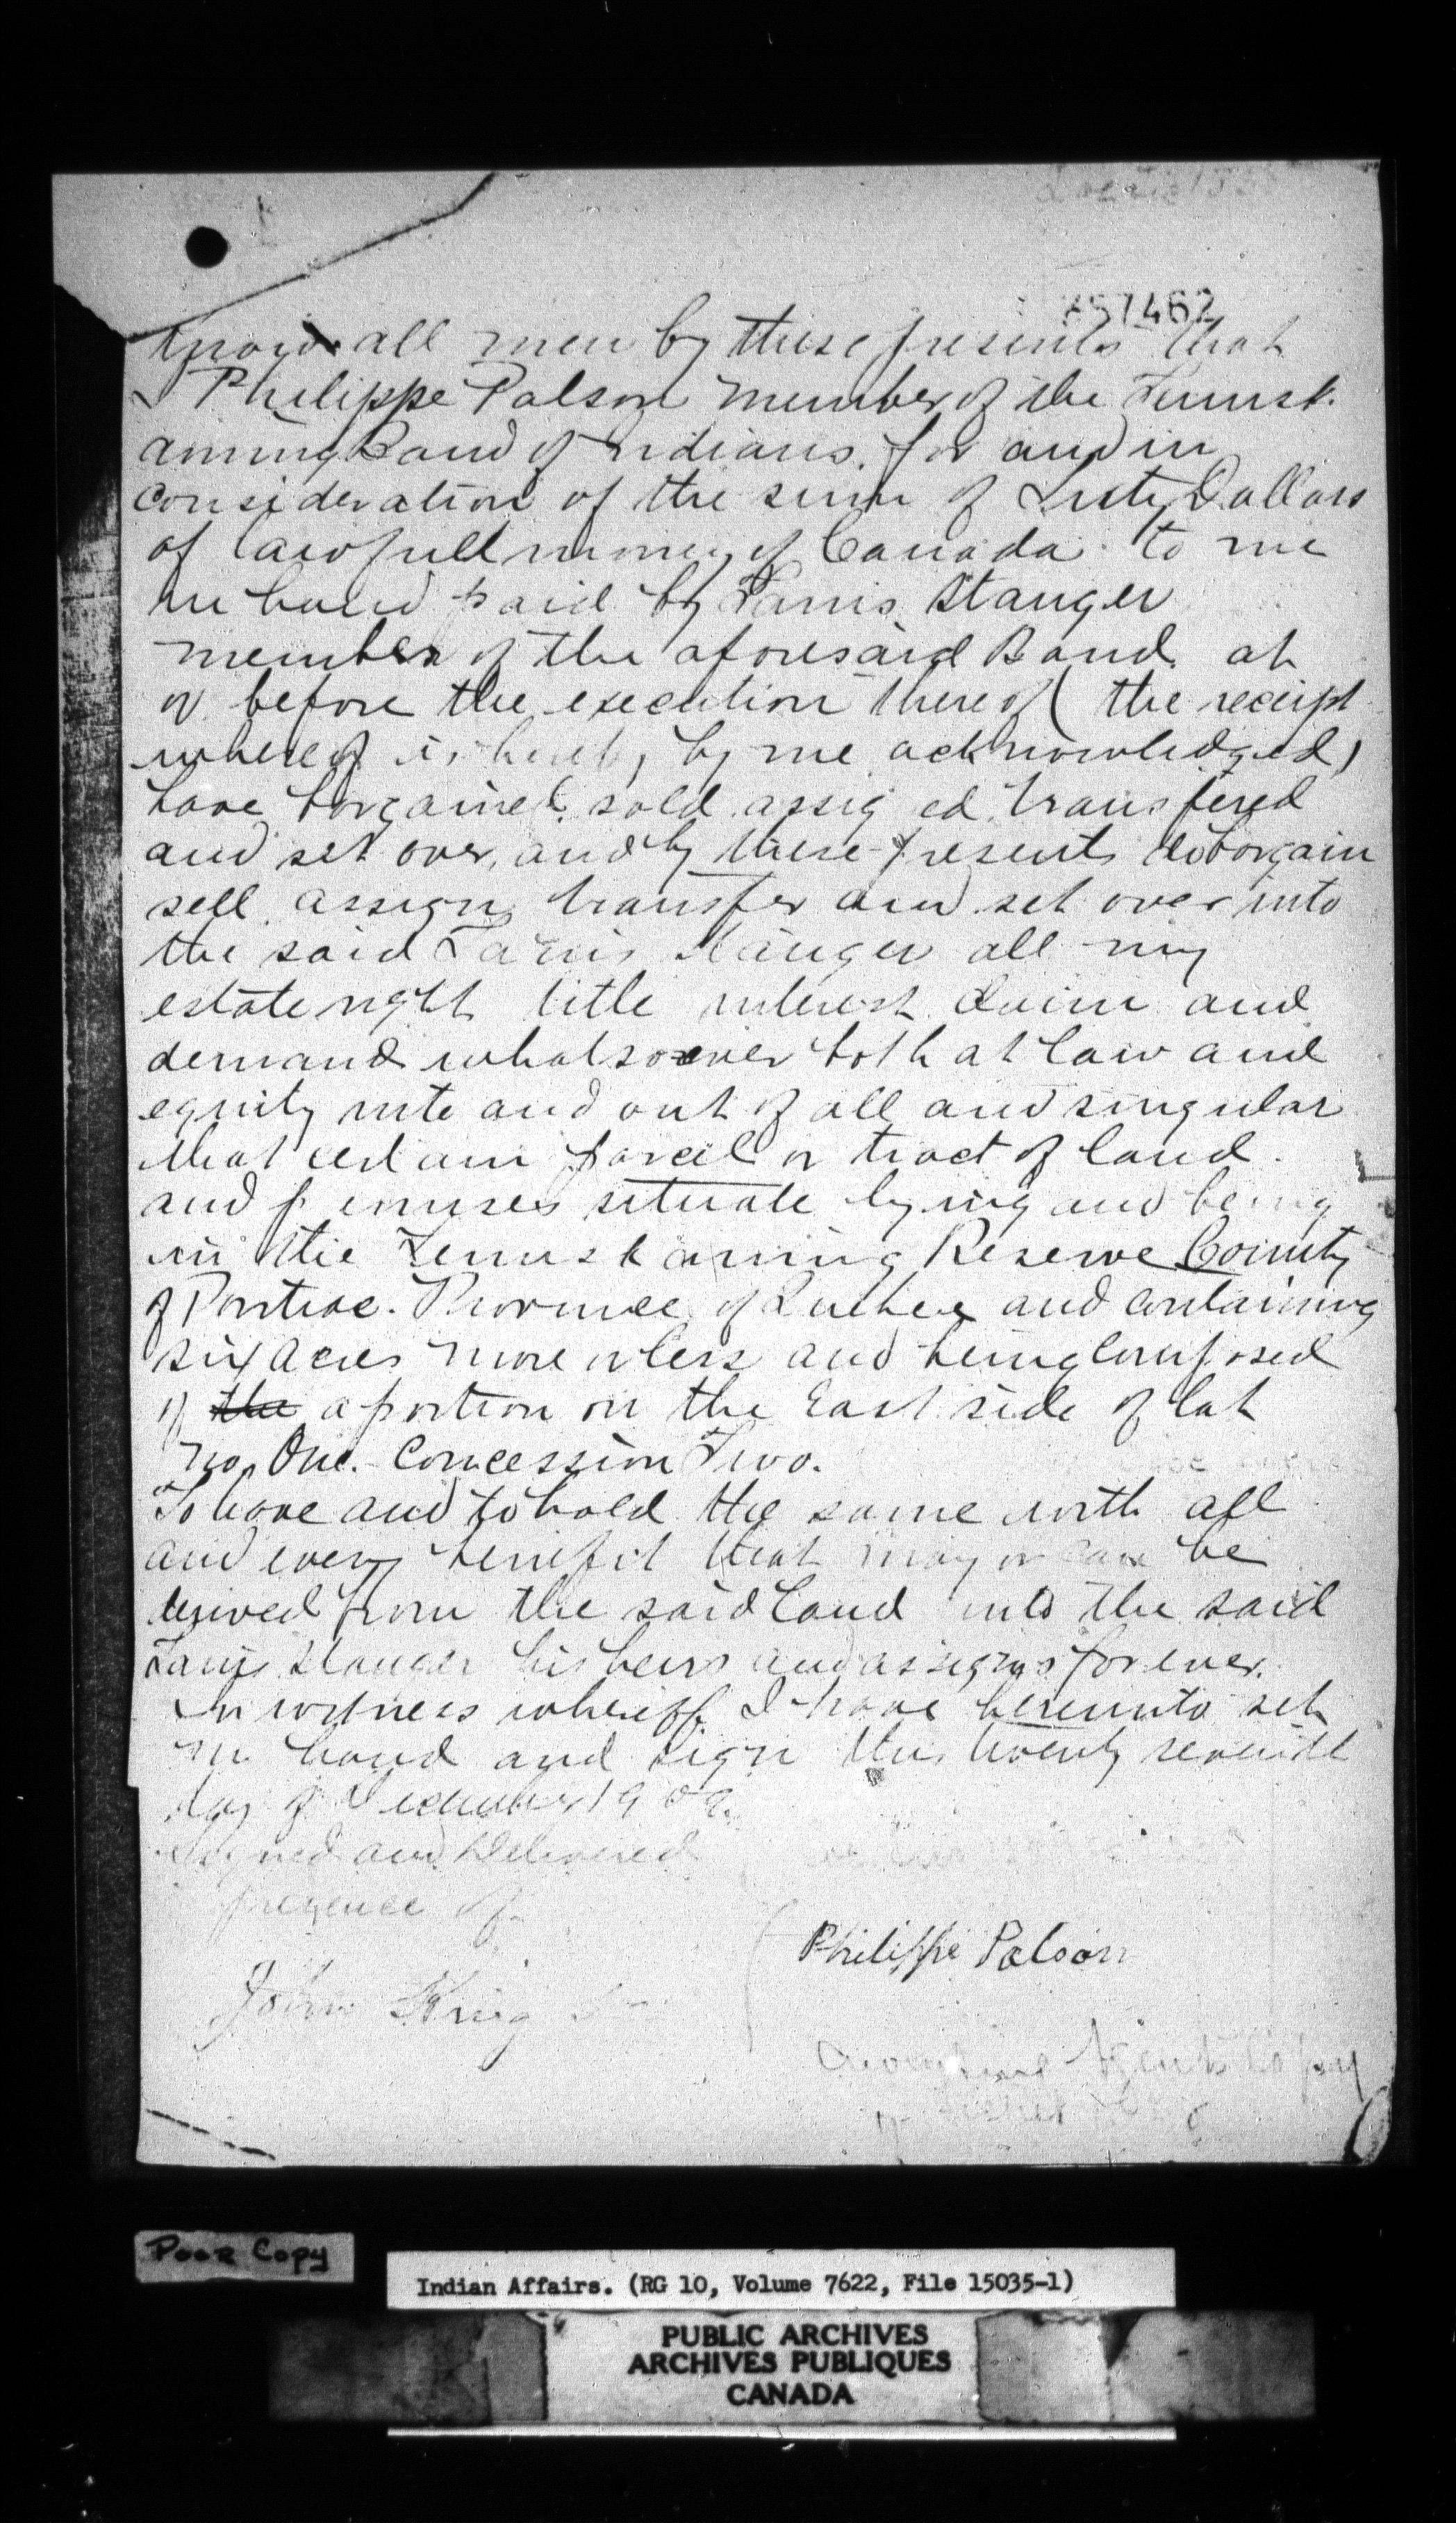 357462
Know all men by these presents that
I Philippe Polson member of the Temisk
aming Band of Indians. for and in
consideration of the sum of Sixty Dollars
of lawfull money of Canada to me
in hand paid by Stanger
member of the aforesaid Band. at
or before the execution thereof (the receipt
whereof is hereby by me acknowledged)
have borgained. sold. assig ed. transfered
and set over, and by these presents do borgain
sell. assign transfer and set over into
the said Stanger all my
estate right title interest claim and
demand whatsoever both at law and
equity into and out of all and singular
that certain parcel or tract of land.
and p emises situate lying and being
in the Temiskaming Reserve County
of Pontiac. Province of Quebec and containing
six acres more or less and being composed
of the a portion on the East side of lot
no. One. Concession Two.
To have and to hold the same with all
and every benefit that may or can be
derived from the said Land into the said
Stanger his heirs and assigns for ever.
In witness whereoff I have hereunto set
my hand and sign this twenty seventh
day of December 1909.
Signed and Delivered
presence of
Philippe Polson
John King
Agents Copy
Poor Copy
Indian Affairs. (RG 10, Volume 7622, File 15035-1)
PUBLIC ARCHIVES
ARCHIVES PUBLIQUES
CANADA